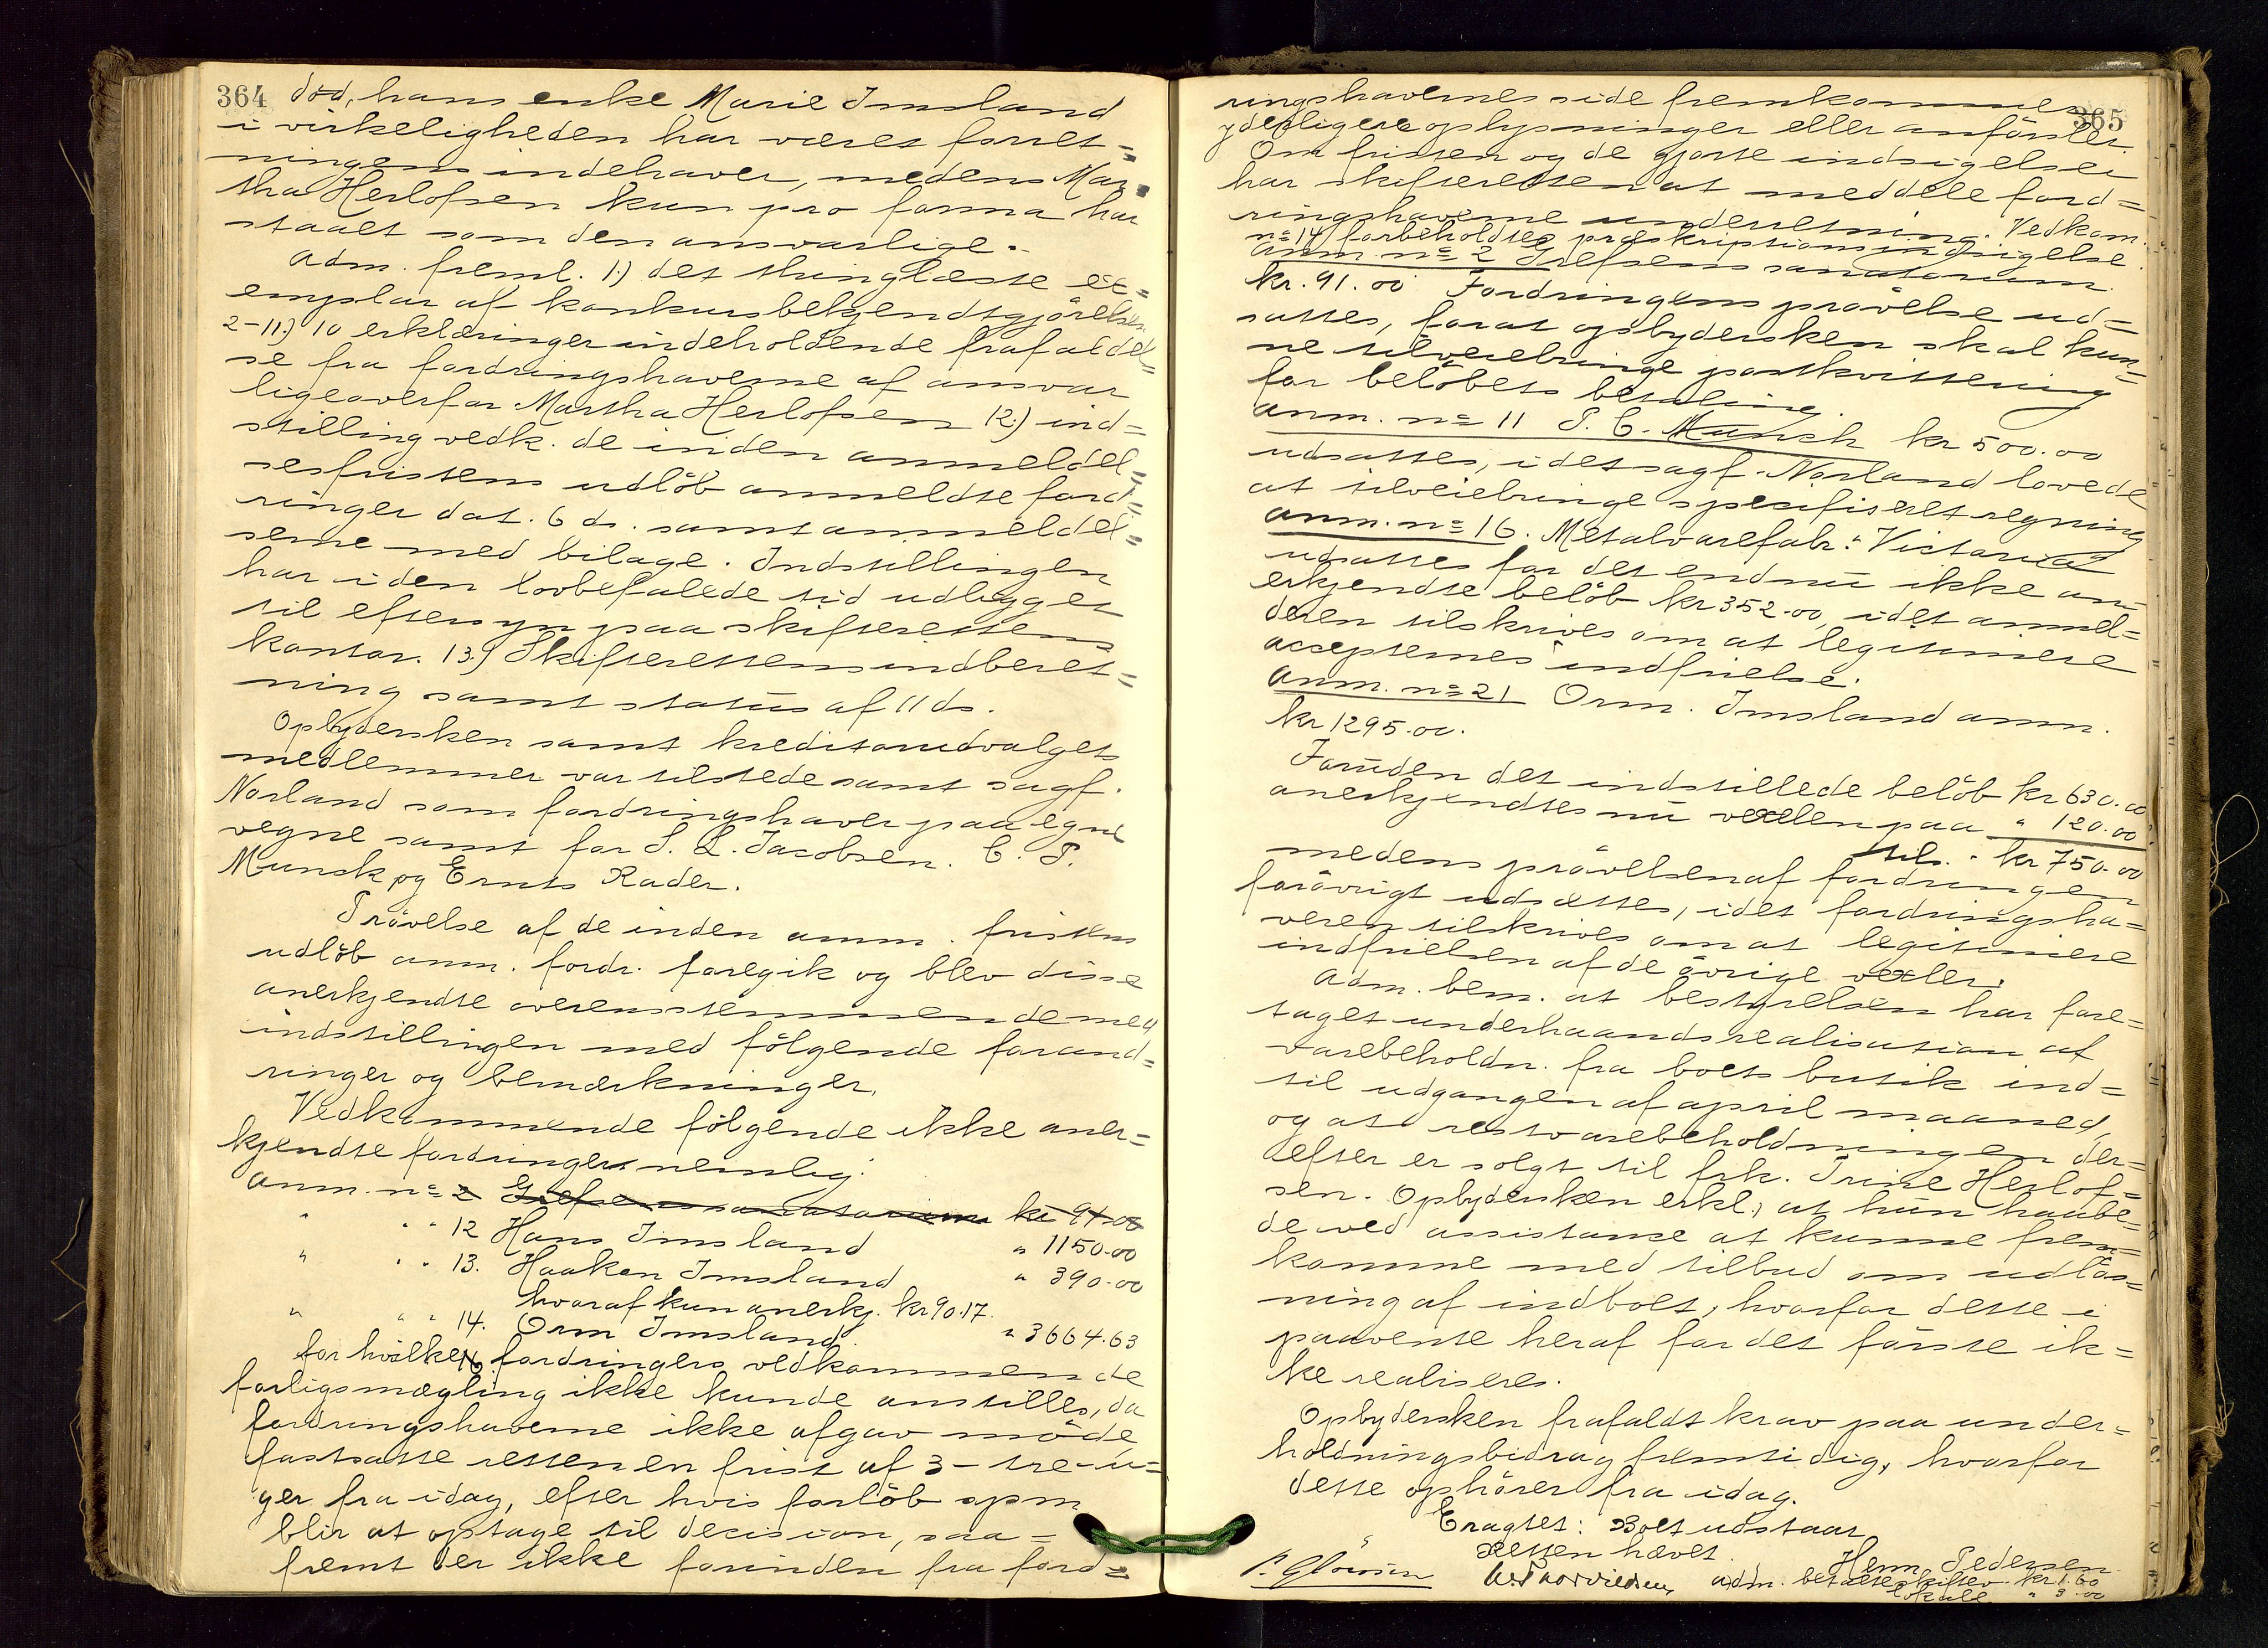 364
död, hans enke Marie Imsland
i virkeligheden har været forret=
ningens indehaver, medens Mar=
tha Herlofsen kun pro forma har
staaet som den ansvarlige.
Adm. freml. 1.) det thinglæste ex=
emplar af konkursbekjendtgjörelsen
2-11.) 10 erklæringer indeholdende frafaldel=
se fra fordringshaverne af ansvar
ligeoverfor Martha Herlofsen 12.) ind=
stilling vedk. de inden anmeldel=
sesfristens udlöb anmeldte ford=
ringer dat. 6 ds. samt anmeldel=
serne med bilage. Indstillingen
har i den lovbefalede tid udligget
til eftersyn paa skifterettens
kontor. 13.) Skifterettens indberet=
ning samt status af 11 ds.
Opbydersken samt kreditorudvalgets
medlemmer var tilstede samt sagf.
Norland som fordringshaver paa egne
vegne samt for S. L. Jacobsen. C. P.
Munsk og Ernts Rader.
Prövelse af de inden anm. fristens
udlöb anm. fordr. foregik og blev disse
anerkjendte overensstemmende med
indstillingen med fölgende forand=
ringer og bemærkninger.
Vedkommende fölgende ikke aner=
kjendte fordringer nemlig:
Anm. no 2 Grefsen sanatorium kr 91.00
" " " 12 Hans Imsland " 1150.00
" " " 13. Haakon Imsland " 390.00
hvoraf kun anerkj. kr 90.17.
" " " 14. Orm Imsland. " 3664.63
for hvilken fordringers vedkommende
forligsmægling ikke kunde anstilles, da
fordringshaverne ikke afgav möde,
fastsatte retten en frist af 3 - tre - u=
ger fra idag, efter hvis forlöb spm
blir at optage til decision, saa=
fremt der ikke forinden fra ford=
365
ringshavernes side fremkommer
yderligere oplysninger eller anförsler.
Om fristen og de gjorte indsigelser
har skifteretten at meddele ford=
ringshaverne underretning. Vedkom.
no 14 forbeholdtes præskriptionsindsigelse.
Anm. no 2 Grefsens sanatorium.
kr. 91.00 Fordringens prövelse ud=
sattes, forat opbydersken skal kun=
ne tilveiebringe postkvittering
for belöbets betaling.
Anm. no 11 P. C. Munch kr 500.00
udsattes, idet sagf. Norland lovede
at tilveiebringe specifiseret regning
Anm. no 16. Metalvarefabr. "Victoria"
udsattes for det endnu ikke an=
erkjendte belöb kr 352.00, idet anmel=
deren tilskrives om at legitimere
accepternes indfrielse.
Anm. no 21 Orm. Imsland anm.
kr 1295.00.
Foruden det indstillede belöb kr 630.00
anerkjendtes nu vexlen paa " 120.00
tils. kr 750.00
medens prövelsen af fordringen
forövrigt udsættes, idet fordringsha=
veren tilskrives om at legitimere
indfrielsen af de övrige vexler.
Adm. bem. at bestyrelsen har fore=
taget underhaandsrealisation af
varebeholdn. fra boets butik ind=
til udgangen af april maaned,
og at restvarebeholdningen der=
efter er solgt til frk. Trine Herlof=
sen. Opbydersken erkl., at hun haabe=
de ved assistance at kunne frem=
komme med tilbud om udlös=
ning af indboet, hvorfor dette i
paavente heraf for det förste ik=
ke realiseres.
Opbydersken frafaldt krav paa under=
holdningsbidrag fremtidig, hvorfor
dette ophörer fra idag.
Eragtet: Boet udstaar
Retten hævet.
Herm. Pedersen
adm. betalte skiftev. kr 1.60
lokale " 3.00